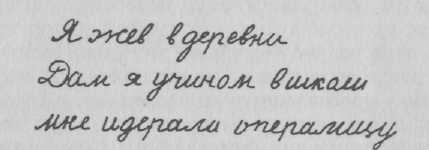 Я жев вдеревни
Дам я учином вшколи
мне идерали операмицу